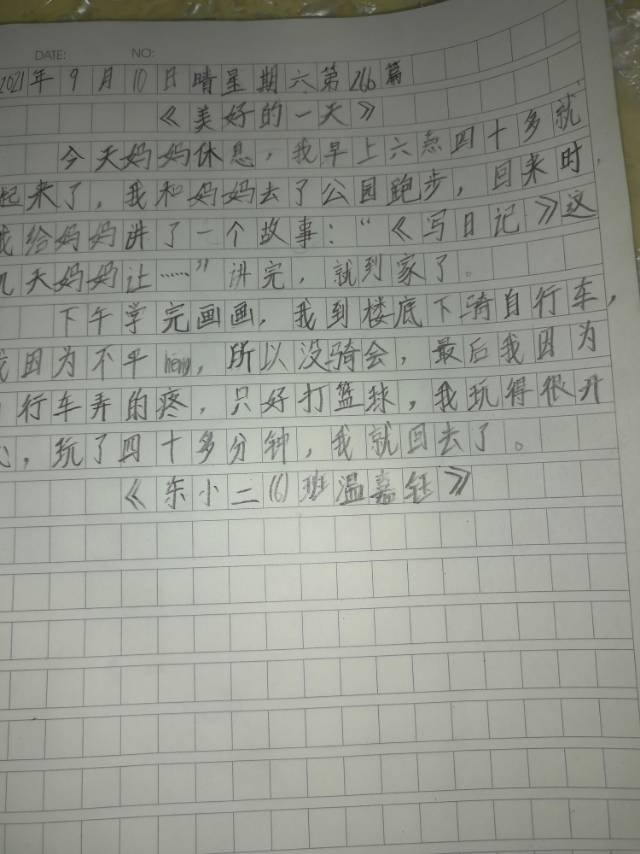 DATE: NO:
2021年9月10日晴星期六第266篇
《美好的一天》
今天妈妈休息，我早上六点四十多就
起来了，我和妈妈去了公园跑步，回来时，
我给妈妈讲了一个故事：“《写日记》这
几天妈妈让……”讲完，就到家了。
下午学完画画，我到楼底下骑自行车，
我因为不平hēng，所以没骑会，最后我因为
行车弄的疼，只好打篮球，我玩得很开
心，玩了四十多分钟，我就回去了。
《东小二(6)班温嘉钰》